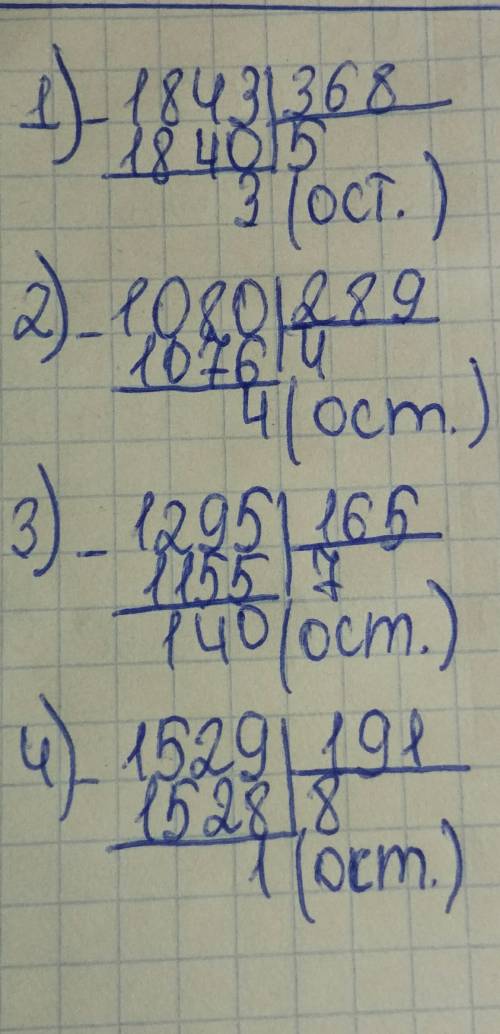 1) - 1843 | 368
1840 | 5
3 (ост.)
2) - 1080 | 289
1076 | 4
4 (ост.)
3) - 1295 | 165
1155 | 7
140 (ост.)
4) - 1529 | 191
1528 | 8
1 (ост.)